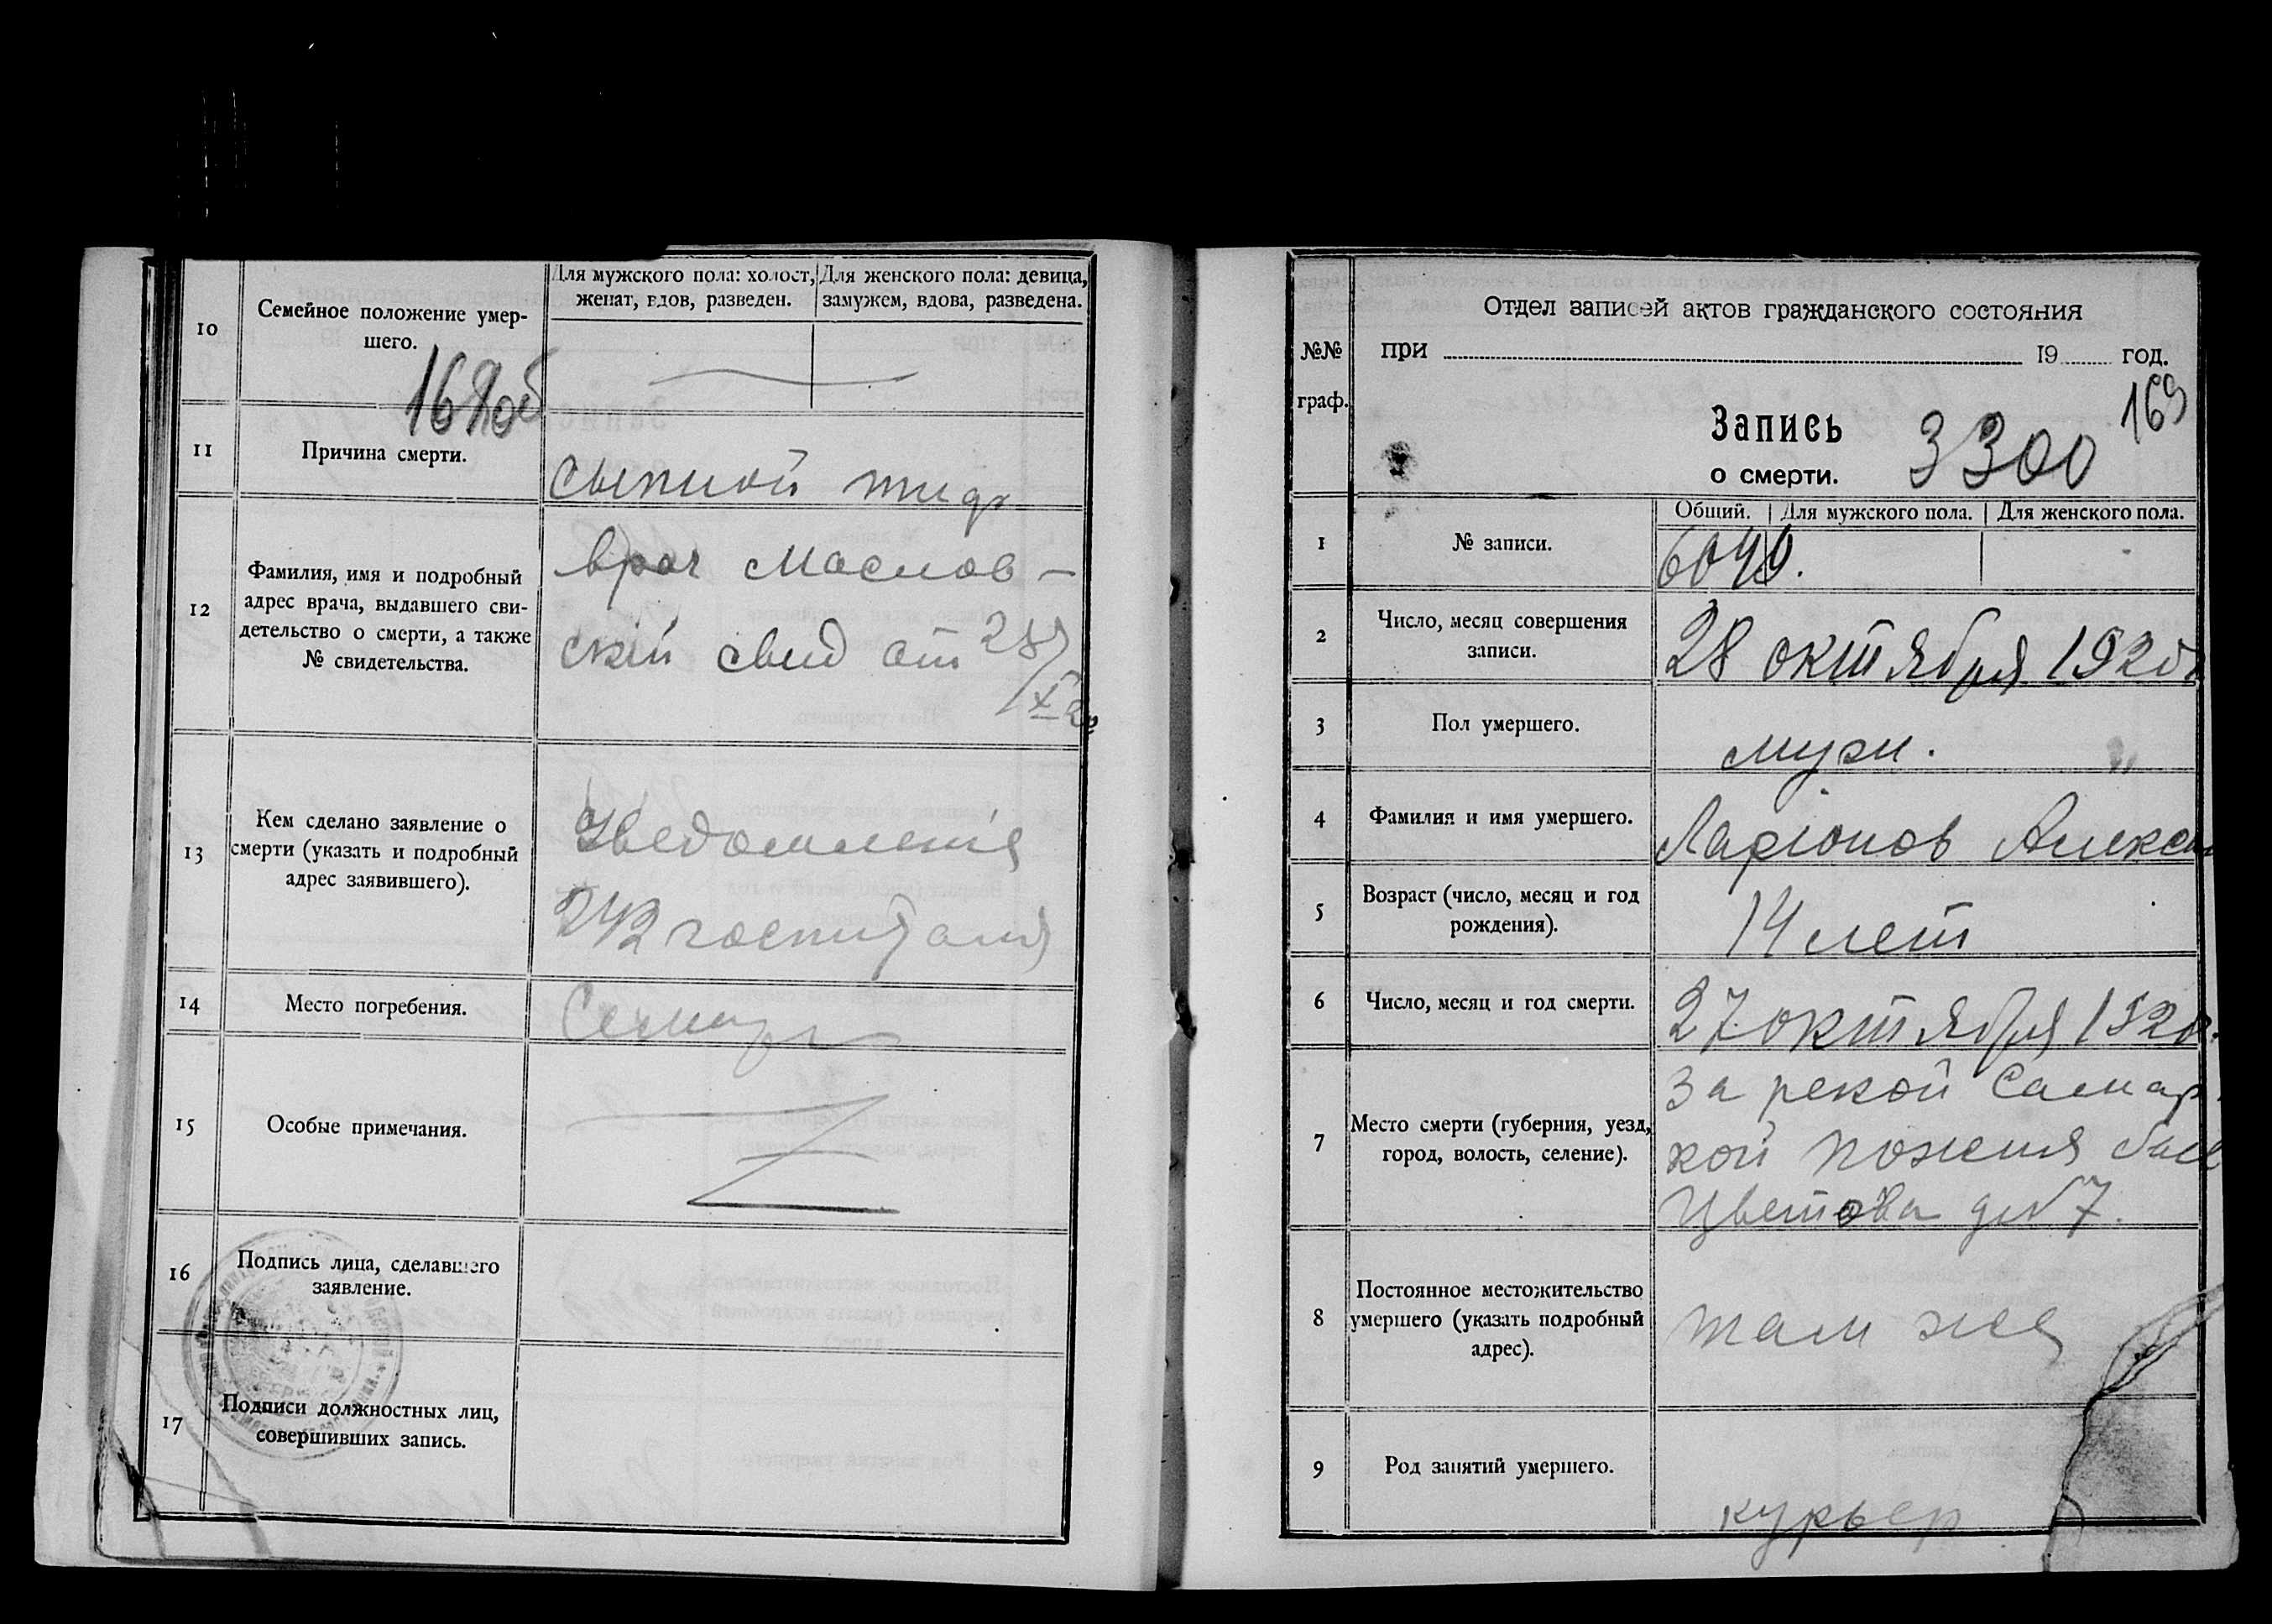 10
Семейное положение умер-
шего.
Для мужского пола: холост,
женат, вдов, разведен.
Для женского пола: девица,
замужем, вдова, разведена.
168об
11
Причина смерти.
сыпной тиф
12
Фамилия, имя и подробный
адрес врача, выдавшего сви-
детельство о смерти, а также
№ свидетельства.
врач Маслов-
скій свид от 28/
X 20
13
Кем сделано заявление о
смерти (указать и подробный
адрес заявившего).
Уведомленія
242 госпиталя
14
Место погребения.
15
Особые примечания.
16
Подпись лица, сделавшего
заявление.
17
Подписи должностных лиц,
совершивших запись.
Отдел записей актов гражданского состояния
при 19 год.
№№
граф.
169
Запись
о смерти.
3300
1
№ записи.
Общий. Для мужского пола. Для женского пола.
2
Число, месяц совершения
записи.
28 октября 1920
3
Пол умершего.
мужч.
4
Фамилия и имя умершего.
Ларіонов Алексан
5
Возраст (число, месяц и год
рождения).
14 лет
6
Число, месяц и год смерти.
27 октября 1920.
7
Место смерти (губерния, уезд,
город, волость, селение).
За рекой Самар
кой
Цветова 7.
8
Постоянное местожительство
умершего (указать подробный
адрес).
там же
9
Род занятий умершего.
курьер